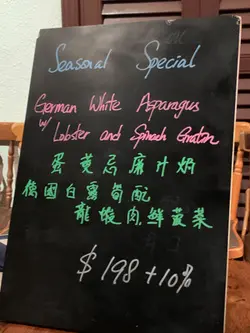 Seasonal Special
German White Asparagus
w/ Lobster and Spinach Gratin
蛋黄忌廉汁焗
德國白露筍配
龍蝦肉鮮菠菜
$198+10%